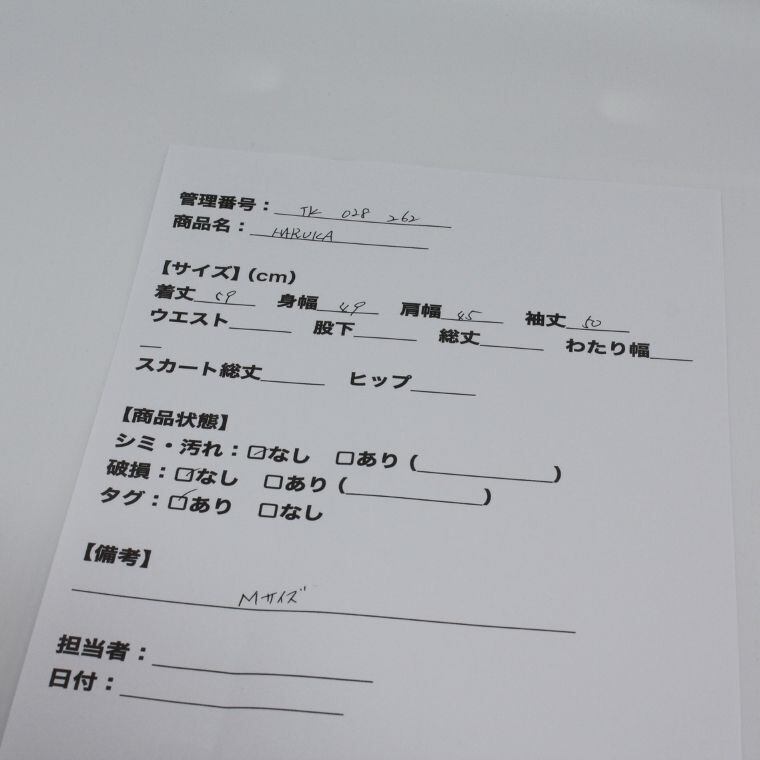 管理番号：TK 028 262
商品名：HARUKA
【サイズ】(cm)
着丈 59 身幅 49 肩幅 45 袖丈 50
ウエスト______ 股下______ 総丈______ わたり幅____
__
スカート総丈______ ヒップ______
【商品状態】
シミ・汚れ：☑なし □あり（____________）
破損：☑なし □あり（____________）
タグ：☑あり □なし
【備考】
Mサイズ
担当者：____________________
日付：____________________